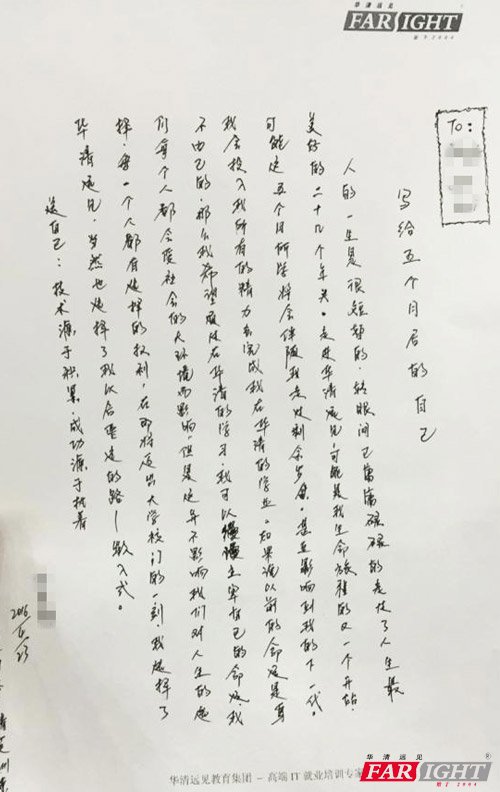 华清远见
FARSIGHT
始于2004
To:
写给五个月后的自己
人的一生是很短暂的,转眼间已庸庸碌碌的走过了人生最
美好的二十几个年头。走进华清远见,可能是我生命旅程的又一个开始。
可能这五个月所学将会伴随我走过剩余岁月,甚至影响到我的下一代。
我会投入我所有的精力去完成我在华清的学业。如果说以前的命运是身
不由己的,那么我希望通过在华清的学习,我可以慢慢主宰自己的命运,我
们每个人都会受社会的大环境而影响,但是这并不影响我们对人生的选
择,每一个人都有选择的权利,在即将迈出大学校门的一刻,我选择了
华清远见,当然也选择了我以后要走的路—嵌入式。
送自己:技术源于积累,成功源于执着
2016
华清远见教育集团 – 高端IT就业培训专家
华清远见
FARSIGHT
始于2004